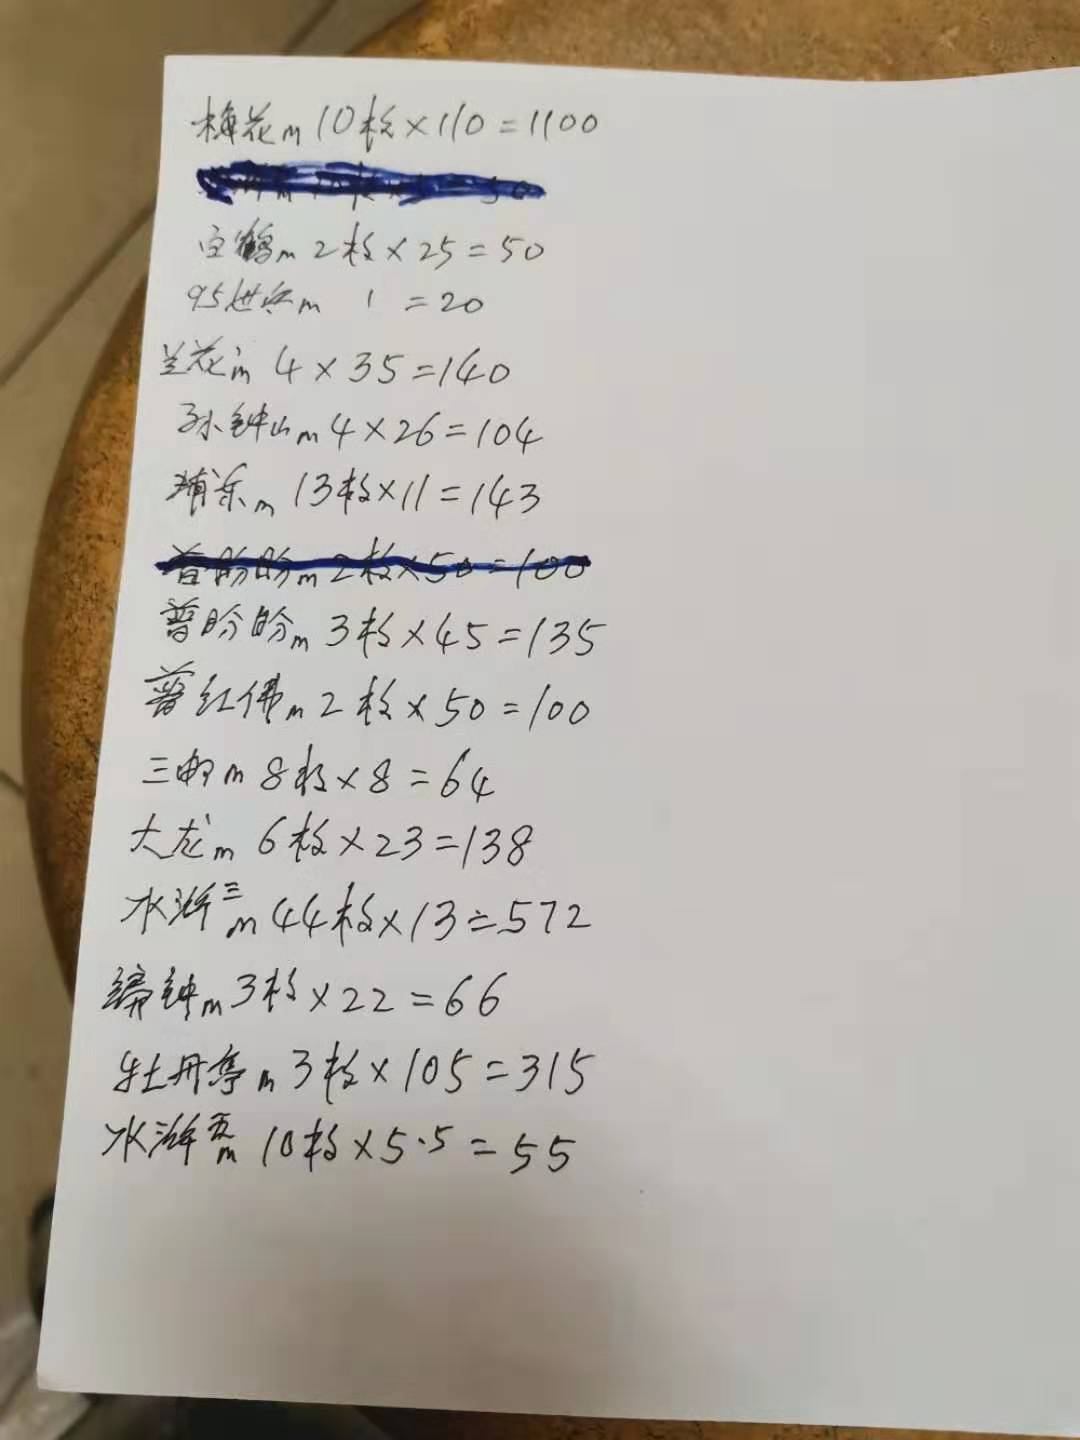 梅花m 10枚×110=1100
白鹤m 2枚×25=50
95世乒m 1 =20
兰花m 4×35=140
孙钟山m 4×26=104
浦东m 13枚×11=143
普盼盼m 2枚×50=100
普盼盼m 3枚×45=135
普红佛m 2枚×50=100
三邮m 8枚×8=64
大龙m 6枚×23=138
水浒三m 44枚×13=572
编钟m 3枚×22=66
牡丹亭m 3枚×105=315
水浒五m 10枚×5.5=55